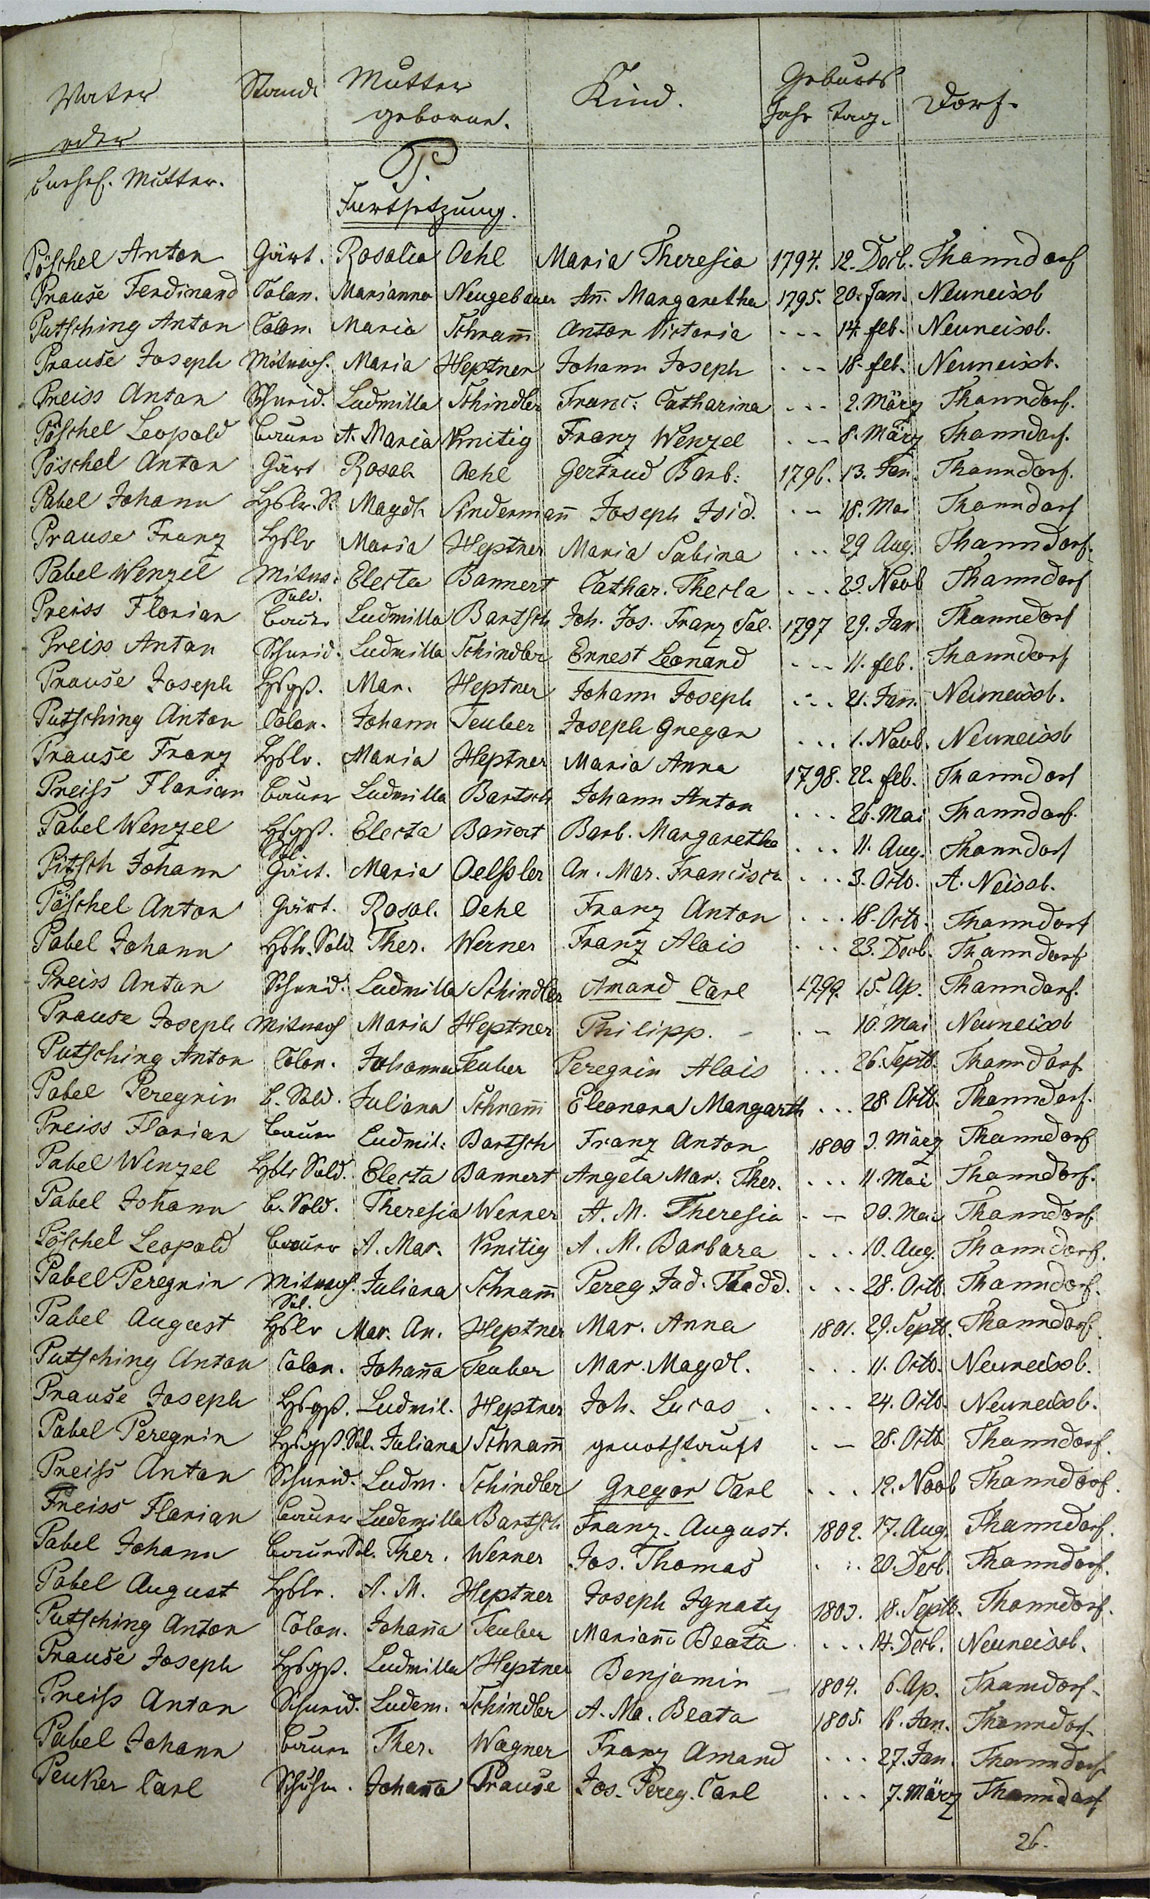 Vater Stand Mutter Kind. Geburts Dorf.
oder geborne. Jahr tag.
unehel. Mutter. P.
Fortsetzung.
Pöschel Anton Gärt. Rosalia Oehl Maria Theresia 1794. 12. Decb. Thanndorf
Prause Ferdinand Colon. Marianna Neugebauer An. Margaretha 1795. 20. Jan. Neuneissb
Putsching Anton Colon. Maria Schram Anton Victoria - - - 14. feb. Neuneissb.
Prause Joseph Maria Heptner Johann Joseph - - - 18. feb. Neuneissb.
Preiss Anton Schneid. Ludmilla Schindler Franc: Catharina - - - 2. März Thanndorf.
Pöschel Leopold Bauer A. Maria Knitig Franz Wenzel - - - 8. März Thanndorf.
Pöschel Anton Gärt Rosal. Oehl Gertrud Barb: 1796. 13. Jan. Thanndorf.
Pabel Johann Magdl. Lindermann Joseph Isid. - - 18. Mai Thanndorf
Prause Franz Hslr Maria Heptner Maria Sabina - - - 29 Aug. Thanndorf.
Pabel Wenzel Electa Bannert Cathar. Thecla - - - 23. Novb Thanndorf
Preiss Florian Bauer Ludmilla Bartsch Joh. Jos. Franz Sal. 1797 29. Jan. Thanndorf
Preiss Anton Schneid. Ludmilla Schindler Ernest Leonard - - - 11. feb. Thanndorf
Prause Joseph Hsgß. Mar. Heptner Johann Joseph - - - 21. Jan. Neuneissb.
Putsching Anton Colon. Johann Teuber Joseph Gregor - - - 1. Novb. Neuneissb
Prause Franz Hslr. Maria Heptner Maria Anna 1798. 22. feb. Thanndorf
Preiss Florian Bauer Ludmilla Bartsch Johann Anton - - - 26. Mai Thanndorf.
Pabel Wenzel Hsgß. Electa Bannert Barb. Margaretha - - - 11. Aug. Thanndorf
Pitsch Johann Gärt. Maria Oelssler An. Mar. Francisca - - - 3. Octb. A. Neissb.
Pöschel Anton Gärt. Rosal. Oehl Franz Anton - - - 18. Octb. Thanndorf
Pabel Johann Hslr. Sold. Ther. Werner Franz Alois - - - 23. Decb. Thanndorf
Preiss Anton Schneid. Ludmilla Schindler Amand Carl 1799. 15. Ap. Thanndorf.
Prause Joseph Maria Heptner Philipp. - - - 10. Mai Neuneissb
Putsching Anton Colon. Johanna Teuber Peregrin Alois - - - 26. Septb. Thanndorf
Pabel Peregrin B. Sold. Juliana Schram Eleonora Margarth - - - 28. Octb. Thanndorf.
Preiss Florian Bauer Ludmil. Bartsch Franz Anton 1800 3. März Thanndorf
Pabel Wenzel Hslr Sold. Electa Bannert Angela Mar. Ther. - - - 11. Mai Thanndorf.
Pabel Johann B. Sold. Theresia Werner A. M. Theresia - - 30. Mai Thanndorf
Pöschel Leopold Bauer A. Mar. Knitig A. M. Barbara - - - 10. Aug. Thanndorf.
Pabel Peregrin Juliana Schram Pereg. Jud. Thadd. - - - 28. Octb. Thanndorf.
Pabel August Hslr Mar. An. Heptner Mar. Anna 1801. 29. Septb. Thanndorf.
Putsching Anton Colon. Johanna Teuber Mar. Magdl. - - - 11. Octb. Neuneissb.
Prause Joseph Hsgß. Ludmil. Heptner Joh. Lucas - - - 24. Octb. Neuneissb.
Pabel Peregrin Hsgß. Sol. Juliana Schram genothtauft - - 28. Octb Thanndorf.
Preiss Anton Schneid. Ludm. Schindler Gregor Carl - - - 12. Novb Thanndorf.
Preiss Florian Bauer Ludemilla Bartsch Franz. August. 1802. 17. Aug. Thanndorf.
Pabel Johann Bauer Sol. Ther. Werner Jos. Thomas - - - 20. Decb. Thanndorf.
Pabel August Hslr. A. M. Heptner Joseph Ignatz 1803. 18. Septb. Thanndorf.
Putsching Anton Colon. Johanna Teuber Mariann Beata - - - 14. Decb. Neuneissb.
Prause Joseph Hsgß. Ludmilla Heptner Benjamin 1804. 6. Ap. Thanndorf.
Preiss Anton Schneid. Ludem. Schindler A. Ma. Beata 1805. 18. Jan. Thanndorf
Pabel Johann Bauer Ther. Wagner Franz Amand - - - 27. Jan. Thanndorf
Peuker Carl Schuhm. Johanna Prause Jos. Pereg. Carl - - - 7. März Thanndorf
26.